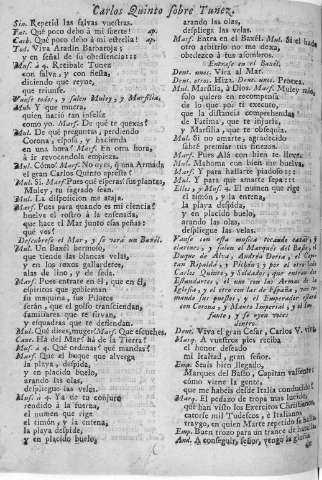 Carlos Quinto sobre Tunez.
Sin. Repetid las salvas vuestras.
Fat. Què poco debo à mi suerte!
Cat. Què poco debo à mi estrella!
Tod. Viva Aradin Barbaroja;
y en señal de su obediencia:::
Mus. à 4. Recibale Tunez
con salva, y con fiesta,
diciendo que reyne,
que triunfe.
Vanse todos, y salen Muley, y Marsilia.
Mul. Y que muera,
quien naciò tan infeliz
como yo. Mars. De què te quexas?
Mul. De què preguntas, perdiendo
Corona, esposa, y hacienda
en una hora? Mars. En otra hora,
à ir revocandola empieza.
Mul. Còmo? Mars. No oyes, que una Armada
el gran Carlos Quinto apresta?
Mul. Si. Mars. Pues què esperas? sus plantas,
Muley, tu sagrado sean.
Mul. La disposicion no ataja.
Mars. Pues para quando es mi ciencia?
buelve el rostro à la ensenada,
que hace el Mar junto essas peñas:
què vès?
Descubrese el Mar, y se verà un Baxèl.
Mul. Un Baxèl hermoso,
que tiende las blancas velas,
y en los remos gallardetes,
alas de lino, y de seda.
Mars. Pues entrate en èl, que en èl,
espiritus que goviernan
su maquina, sus Pilotos
seràn, que el golfo trasciendan,
familiares que te sirvan,
y esquadras que te defiendan.
Mul. Què dices, muger? Mars. Que escuches.
Cant. Ha del Mar? ha de la Tierra?
Mus. à 4. Què ordenas? què mandas?
Mars. Que el buque que alverga
la playa, despida,
y en placido buelo,
arando las olas,
despliegue las velas.
Mus. à 4. Ya de tu conjuro
rendido à la fuerza,
el numen que rige
el timòn, y la entena,
la playa despide,
y en placido buelo,
arando las olas,
despliega las velas.
Mars. Entra en el Baxèl. Mul. Si el hado
otro arbitrio no me dexa,
obedezco à tus assombros.
Entrase en el Baxèl.
Dent. unos. Vira al Mar.
Dent. otros. Hiza. Dent. unos. Proexa.
Mul. Marsilia, à Dios. Mars. Muley mio,
solo quiero en recompensa
de lo que por ti executo,
que la distancia comprehendas
de Fatima, que te injuria,
y Marsilia, que te obsequia.
Mul. Si no amarte, agradecido
sabrè premiar tus finezas.
Mars. Pues Alà con bien te lleve.
Mul. Mahoma con bien me buelva.
Mars. Y para hallarte piadoso:::
Mul. Y para que amarte sepa:::
Ellos, y Mus. 4. El numen que rige
el timòn, y la entena,
la playa despida,
y en placido buelo,
arando las olas,
despliegue las velas.
Vanse con esta musica tocando caxas, y
clarines, y salen el Marquès del Basto, el
Duque de Alva, Andrea Doria, el Capitan
Carlos Quinto, y Soldados, que entran dos
Estandartes, el uno con las Armas de la
Iglesia, y el otro con las de España,
y el Emperador
con Corona, y Manto Imperial,
Dent. Viva el gran Cesar, Carlos V. viva.
Marq. A vuestros pies reciba
el honor deseado
mi lealtad, gran señor.
Emp. Seais bien llegado,
Marques del Basto, Capitan valiente:
còmo viene la gente,
que me habeis desde Italia conducido?
Marq. El pedazo de tropa mas lucido,
que han visto los Exercitos Christianos,
catorce mil Tudescos, è Italianos
traygo, en quien Marte repetido se halla.
Emp. Buen trozo para trance de batalla.
And. A conseguir, señor, vengo la gloria